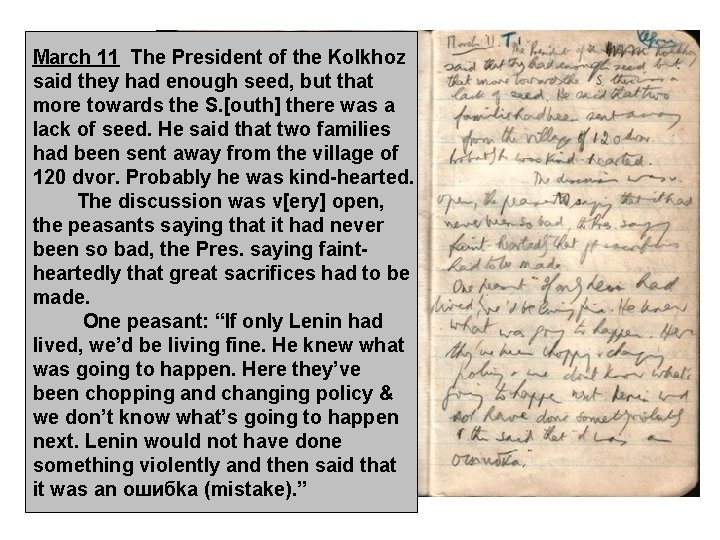 March 11 The President of the Kolkhoz
said they had enough seed, but that
more towards the S.[outh] there was a
lack of seed. He said that two families
had been sent away from the village of
120 dvor. Probably he was kind-hearted.
The discussion was v[ery] open,
the peasants saying that it had never
been so bad, the Pres. saying faint-
heartedly that great sacrifices had to be
made.
One peasant: “If only Lenin had
lived, we’d be living fine. He knew what
was going to happen. Here they’ve
been chopping and changing policy &
we don’t know what’s going to happen
next. Lenin would not have done
something violently and then said that
it was an ошибка (mistake).”
March 11. The President of the Kolkhoz
said that they had enough seed but
that more towards the S. there was a
lack of seed. He said that two
families had been sent away
from the village of 120 dvor
Probably he was kind-hearted.
The discussion was v.
open, the peasants saying that it had
never been so bad, the Pres. saying
faint heartedly that gt sacrifices
had to be made.
One peasant "If only Lenin had
lived we'd be living fine. He knew
what was going to happen. Here
they've been chopping & changing
policy & we don't know what's
going to happen next. Lenin wd
not have done something violently
& then said that it was an
ошибка.